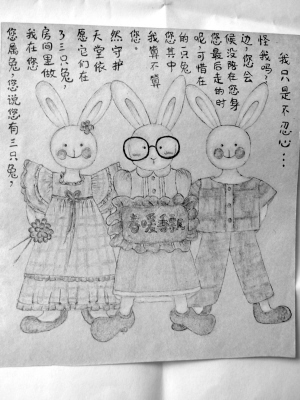 您属兔，您说您有三只兔，
我在您
房间里做
了三只兔，
愿它们在
天堂依
然守护
您。
我算不算
您其中
的一只兔
呢，可惜在
您最后走的时
候没陪在您身
边，您会
怪我吗，
我只是不忍心…